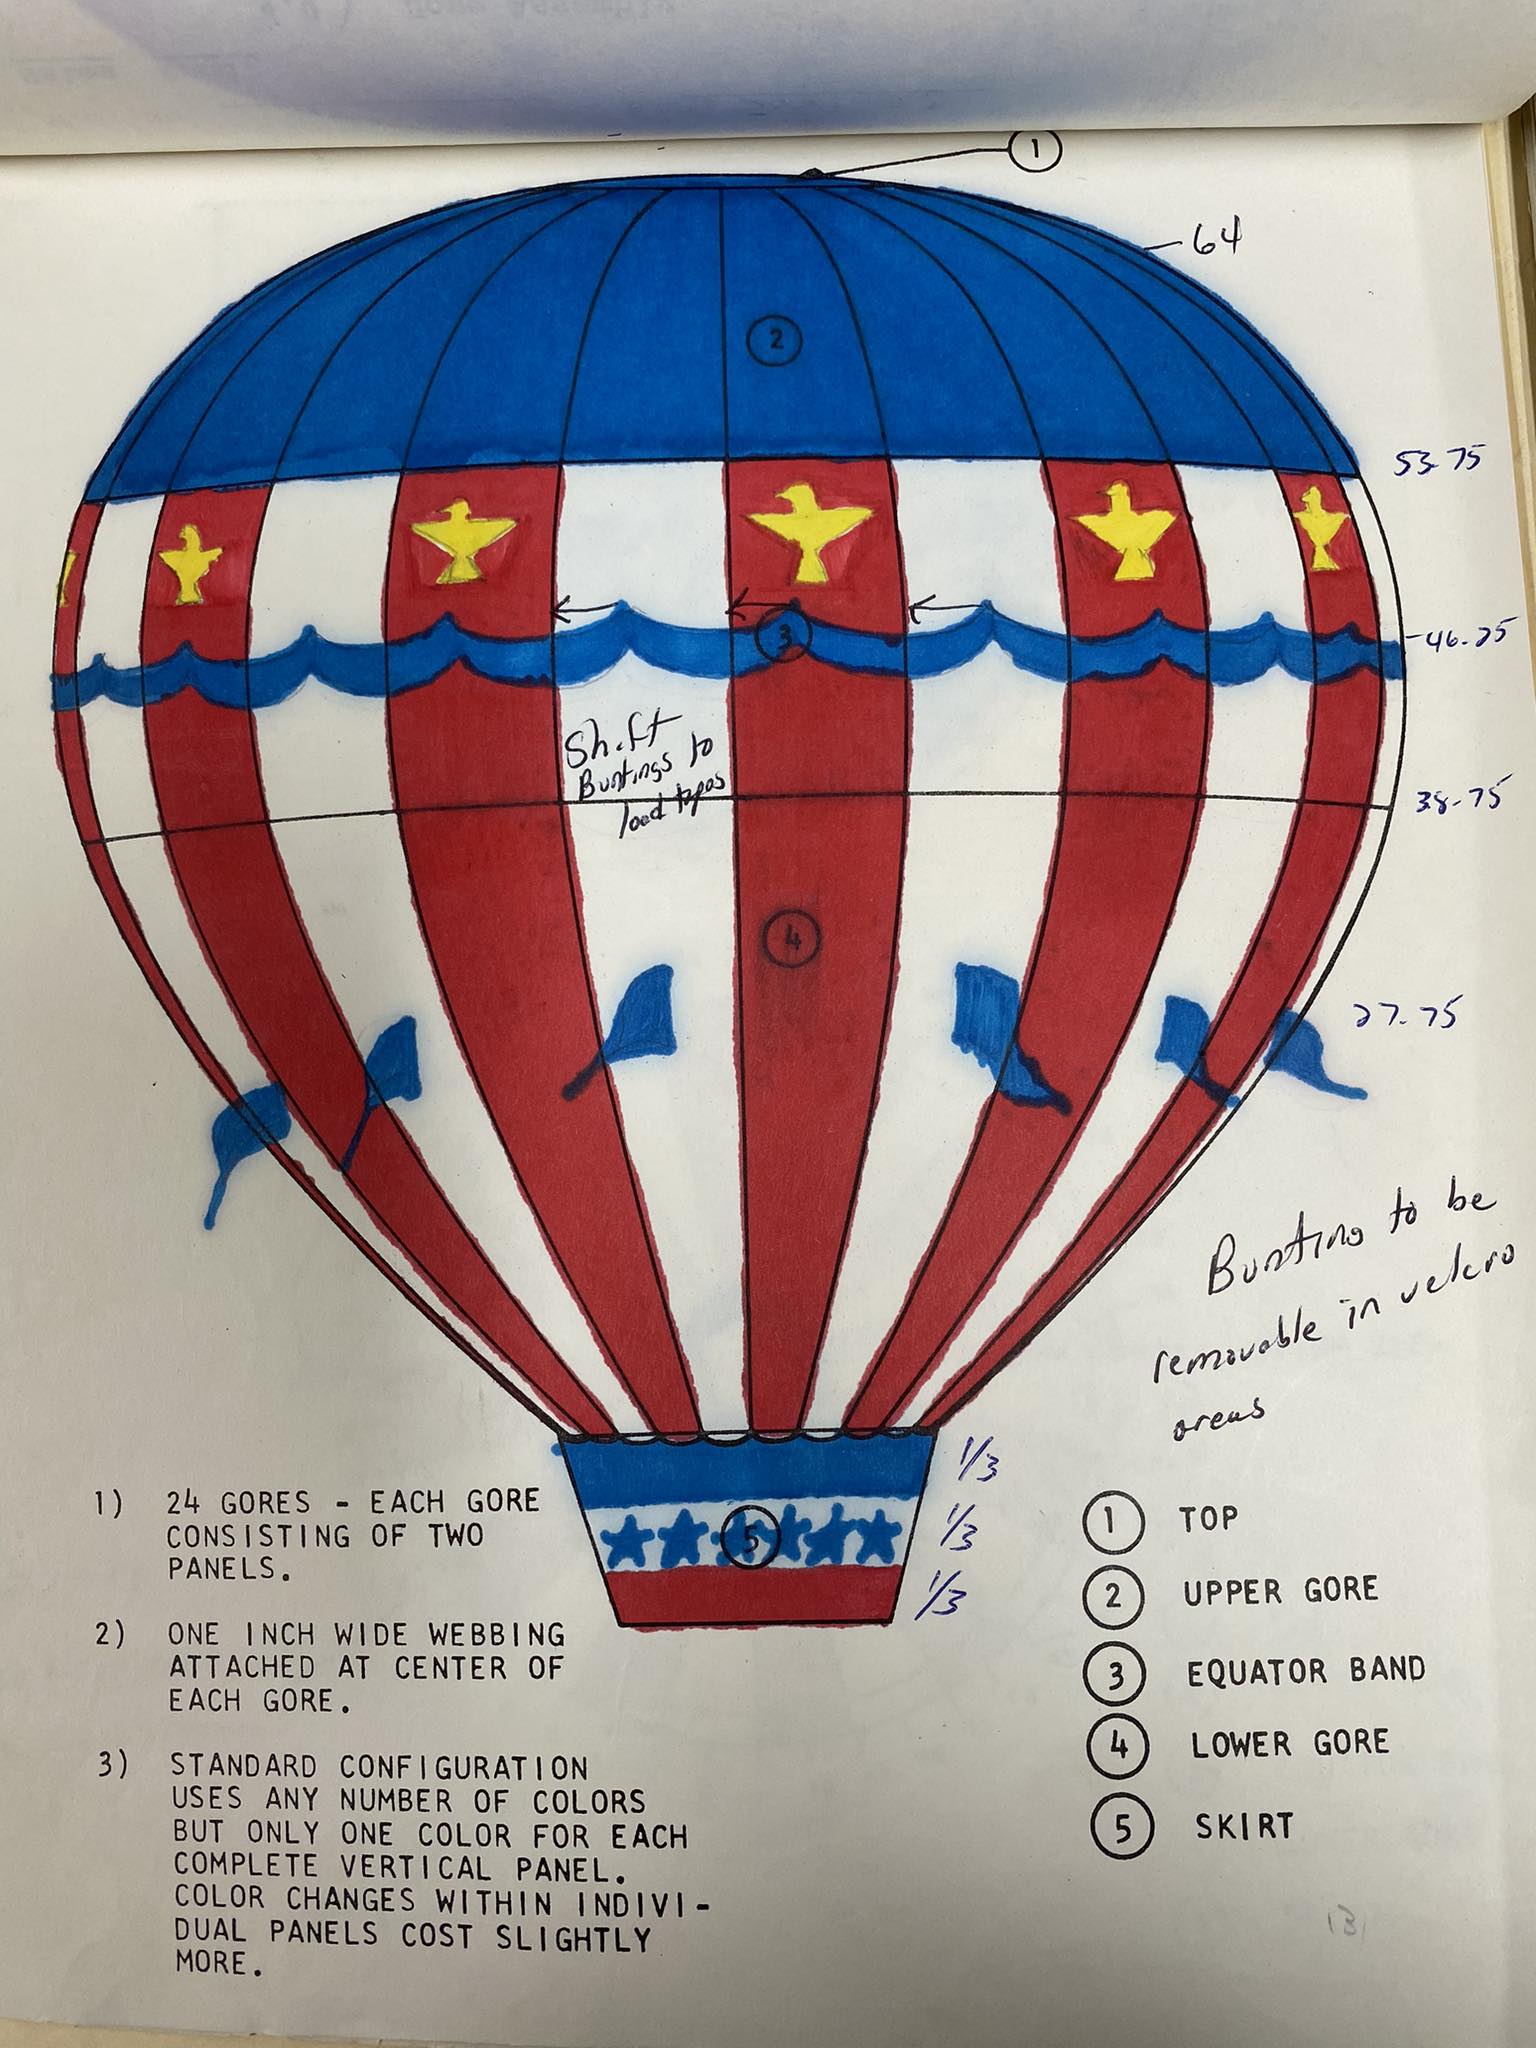 1
64
2
53.75
3
46.25
Shift
Buntings to
load tapes
38.75
4
27.75
Bunting to be
removable in velcro
areas
1/3
1/3
5
1/3
1) 24 GORES - EACH GORE
CONSISTING OF TWO
PANELS.
2) ONE INCH WIDE WEBBING
ATTACHED AT CENTER OF
EACH GORE.
3) STANDARD CONFIGURATION
USES ANY NUMBER OF COLORS
BUT ONLY ONE COLOR FOR EACH
COMPLETE VERTICAL PANEL.
COLOR CHANGES WITHIN INDIVI-
DUAL PANELS COST SLIGHTLY
MORE.
1 TOP
2 UPPER GORE
3 EQUATOR BAND
4 LOWER GORE
5 SKIRT